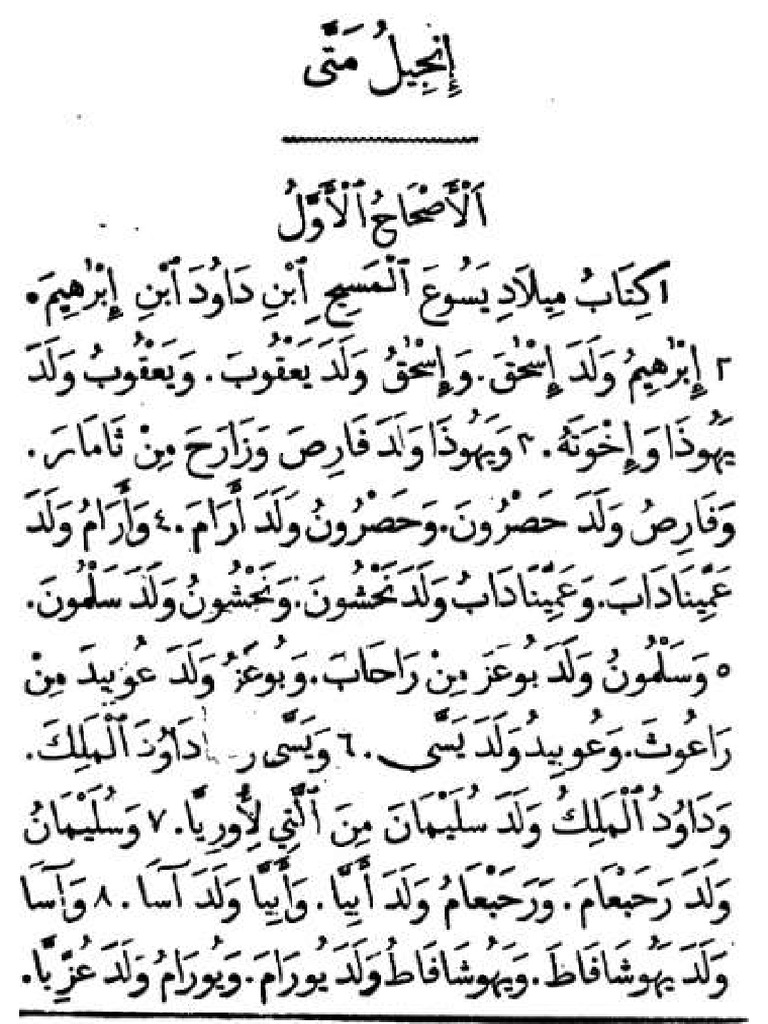 إِنْجِيلُ مَتَّى
اَلْأَصْحَاحُ ٱلْأَوَّلُ
١ كِتَابُ مِيلَادِ يَسُوعَ ٱلْمَسِيحِ ٱبْنِ دَاوُدَ ٱبْنِ إِبْرٰهِيمَ.
٢ إِبْرٰهِيمُ وَلَدَ إِسْحٰقَ. وَإِسْحٰقُ وَلَدَ يَعْقُوبَ. وَيَعْقُوبُ وَلَدَ
يَهُوذَا وَإِخْوَتَهُ. ٣ وَيَهُوذَا وَلَدَ فَارِصَ وَزَارَحَ مِنْ ثَامَارَ.
وَفَارِصُ وَلَدَ حَصْرُونَ. وَحَصْرُونُ وَلَدَ أَرَامَ. ٤ وَأَرَامُ وَلَدَ
عَمِّينَادَابَ. وَعَمِّينَادَابُ وَلَدَ نَحْشُونَ. وَنَحْشُونُ وَلَدَ سَلْمُونَ.
٥ وَسَلْمُونُ وَلَدَ بُوعَزَ مِنْ رَاحَابَ. وَبُوعَزُ وَلَدَ عُوبِيدَ مِنْ
رَاعُوثَ. وَعُوبِيدُ وَلَدَ يَسَّى. ٦ وَيَسَّى دَاوُدَ ٱلْمَلِكَ.
وَدَاوُدُ ٱلْمَلِكُ وَلَدَ سُلَيْمَانَ مِنَ ٱلَّتِي لِأُورِيَّا. ٧ وَسُلَيْمَانُ
وَلَدَ رَحَبْعَامَ. وَرَحَبْعَامُ وَلَدَ أَبِيَّا. وَأَبِيَّا وَلَدَ آسَا. ٨ وَآسَا
وَلَدَ يَهُوشَافَاطَ. وَيَهُوشَافَاطُ وَلَدَ يُورَامَ. وَيُورَامُ وَلَدَ عُزِّيَّا.